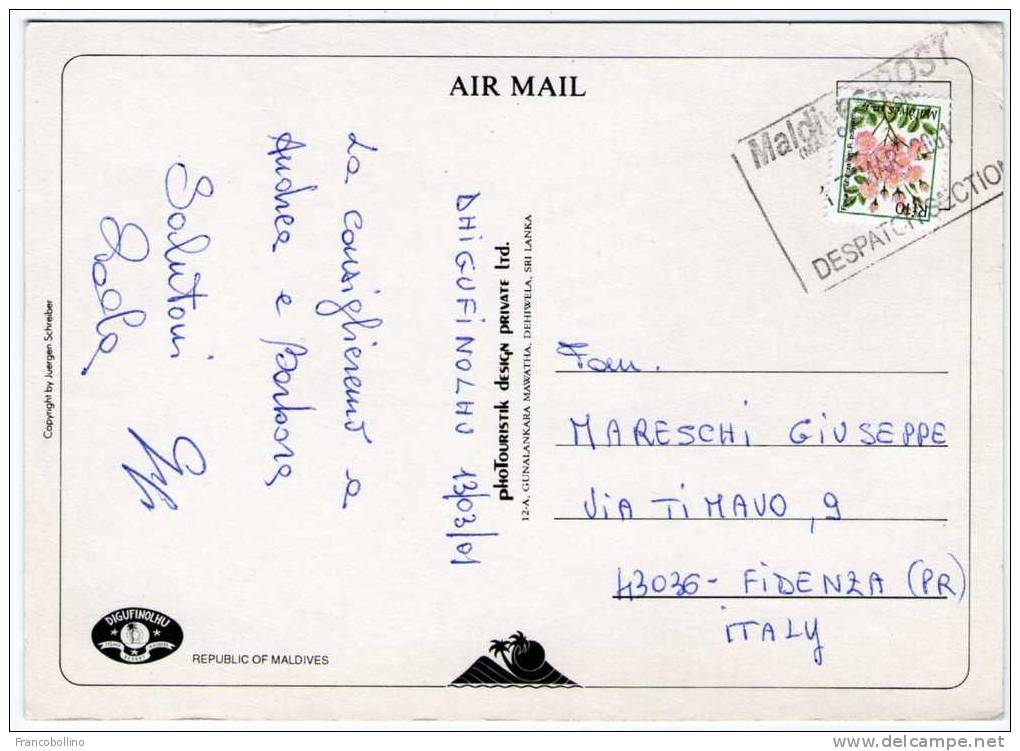 AIR MAIL
DHIGUFINOLHU 13/03/01
La consiglieremo a
Andrea e Barbara
Salutoni
Paola
Maldives POST
MAR 2001
DESPATCH SECTION
MALDIVES
Rf10
phoTouristik design private ltd.
12-A, GUNALANKARA MAWATHA, DEHIWELA, SRI LANKA
Fam.
MARESCHI GIUSEPPE
VIA TIMAVO, 9
43036 - FIDENZA (PR)
ITALY
Copyright by Juergen Schreiber
DIGUFINOLHU
REPUBLIC OF MALDIVES
Francobollino
www.delcampe.net